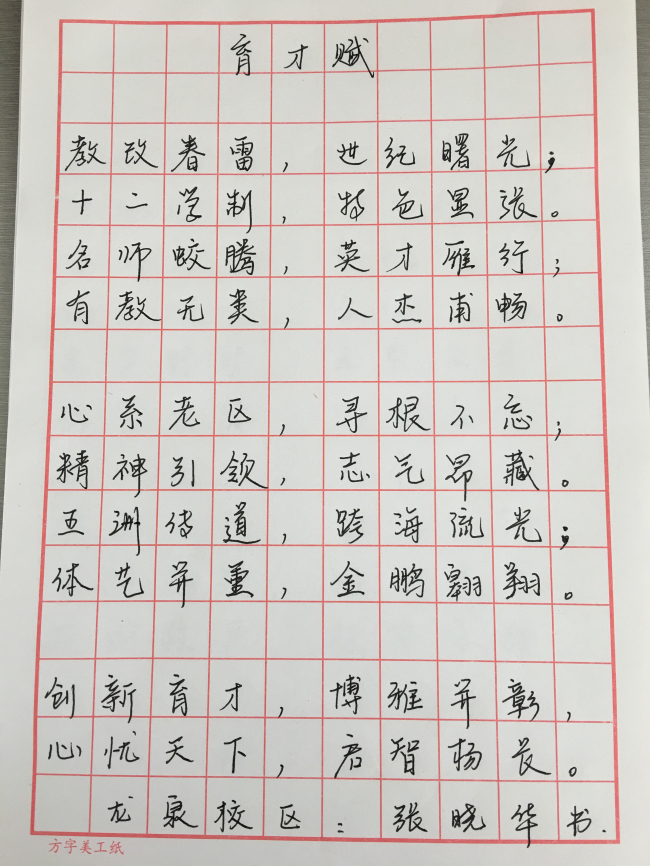 育才赋
教改春雷，世纪曙光；
十二学制，特色显张。
名师蛟腾，英才雁行；
有教无类，人杰甫畅。
心系老区，寻根不忘；
精神引领，志气昂藏。
五洲传道，跨海流光；
体艺并重，金鹏翱翔。
创新育才，博雅并彰，
心忧天下，启智杨长。
龙泉校区：张晓华书.
方字美工纸